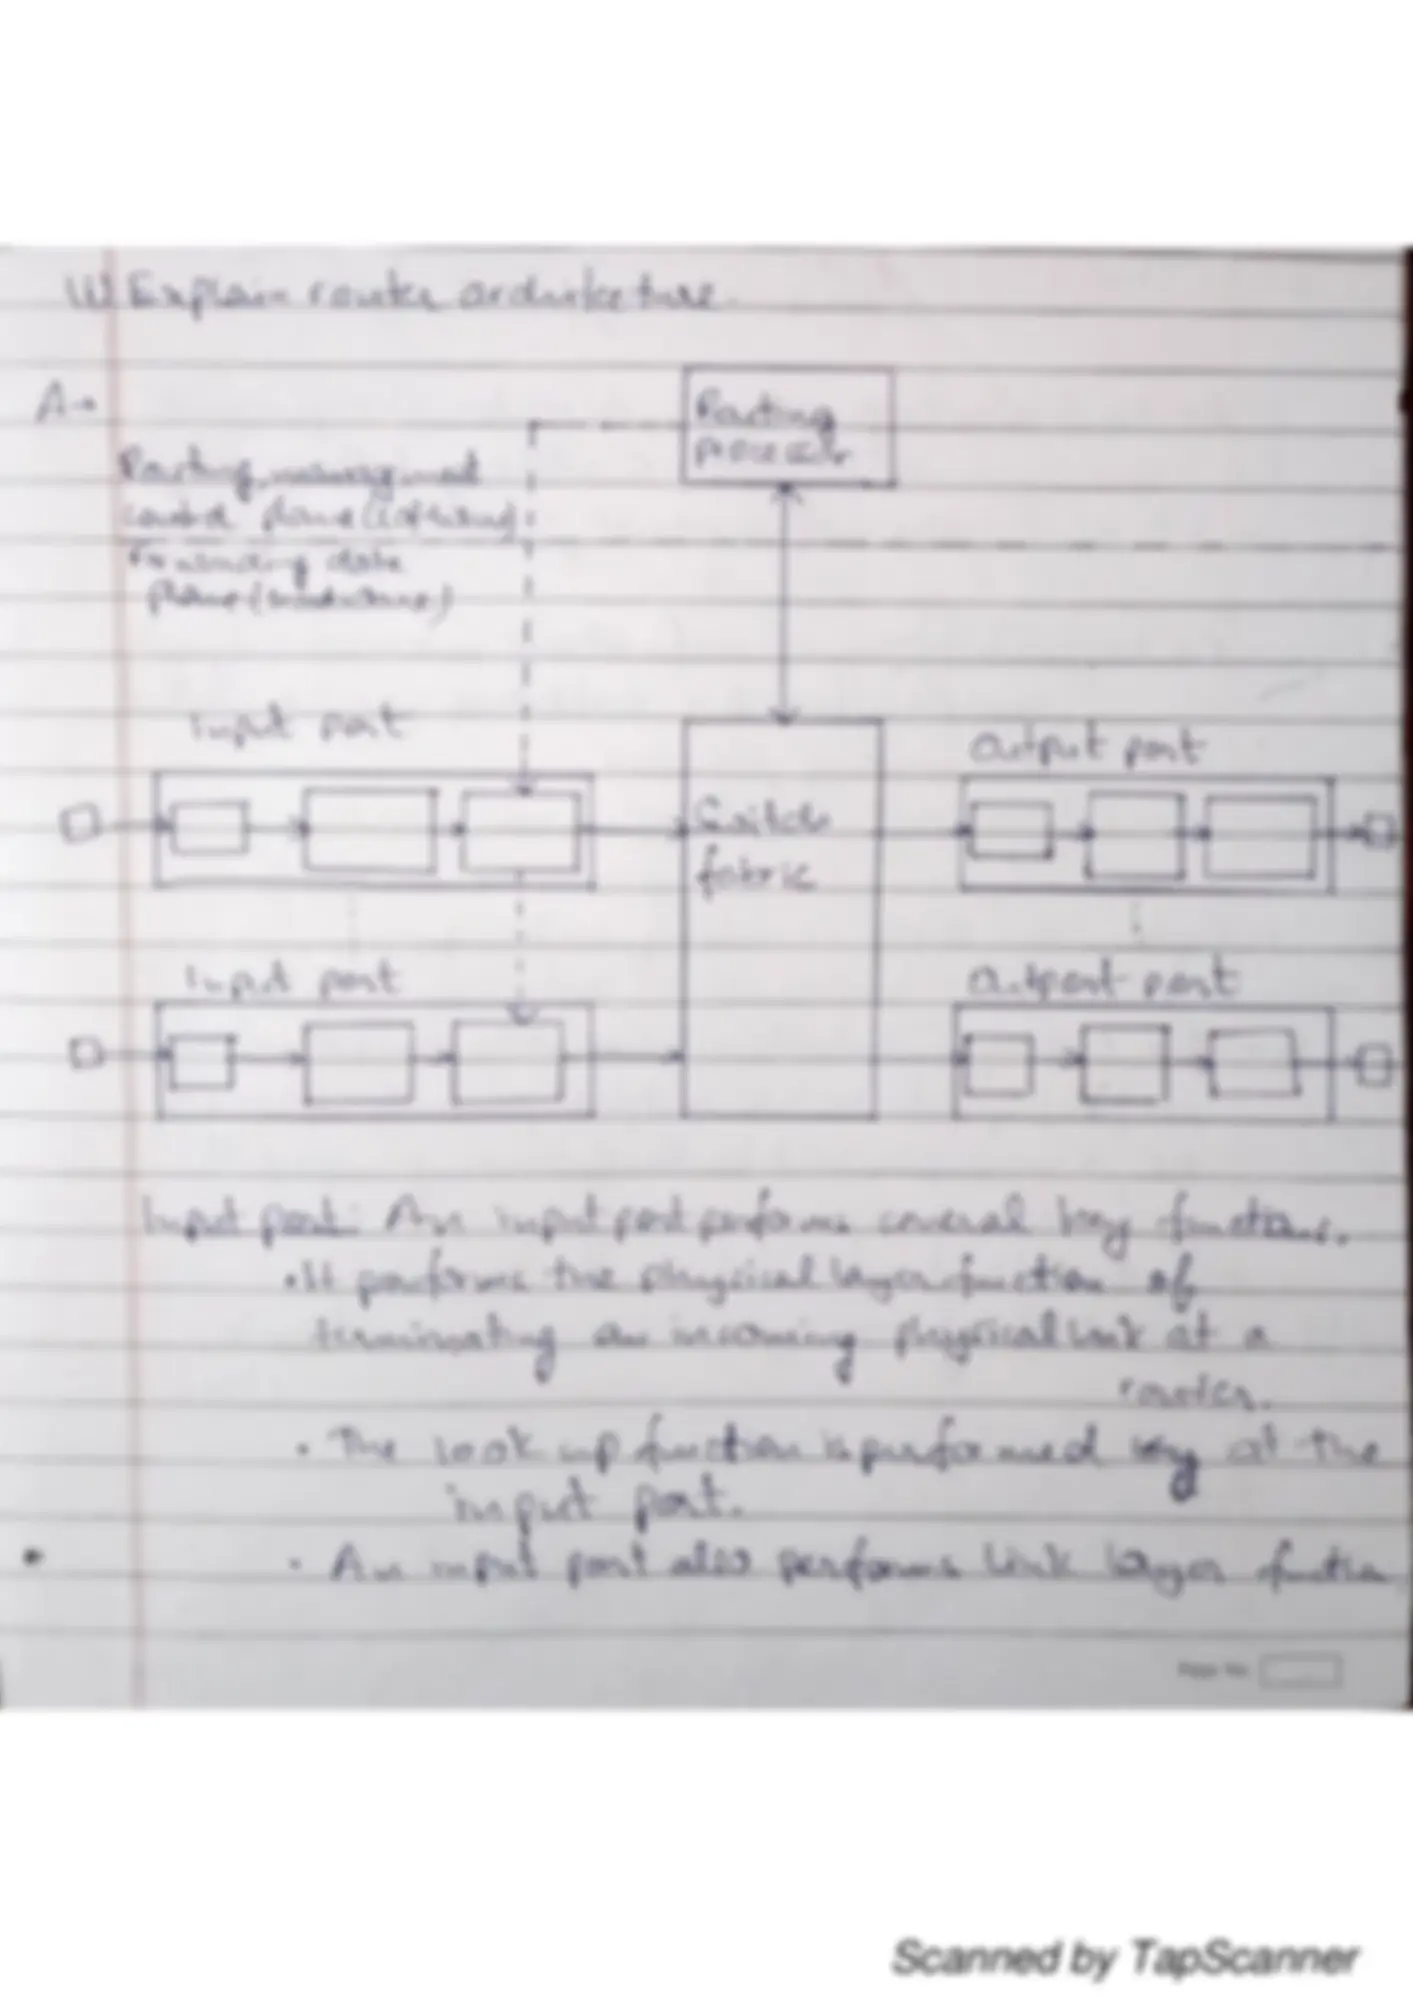 ii) Explain router architecture.
A→
Routing
processor
Routing, management
control plane (software)
Forwarding data
plane (hardware)
Input port
Output port
Switch
fabric
Input port
Outport port
Input port: An input port performs several key functions.
• It performs the physical layer function of
terminating an incoming physical link at a
router.
• The look up function is performed at the
input port.
• An input port also performs link layer function
Page No.
Scanned by TapScanner